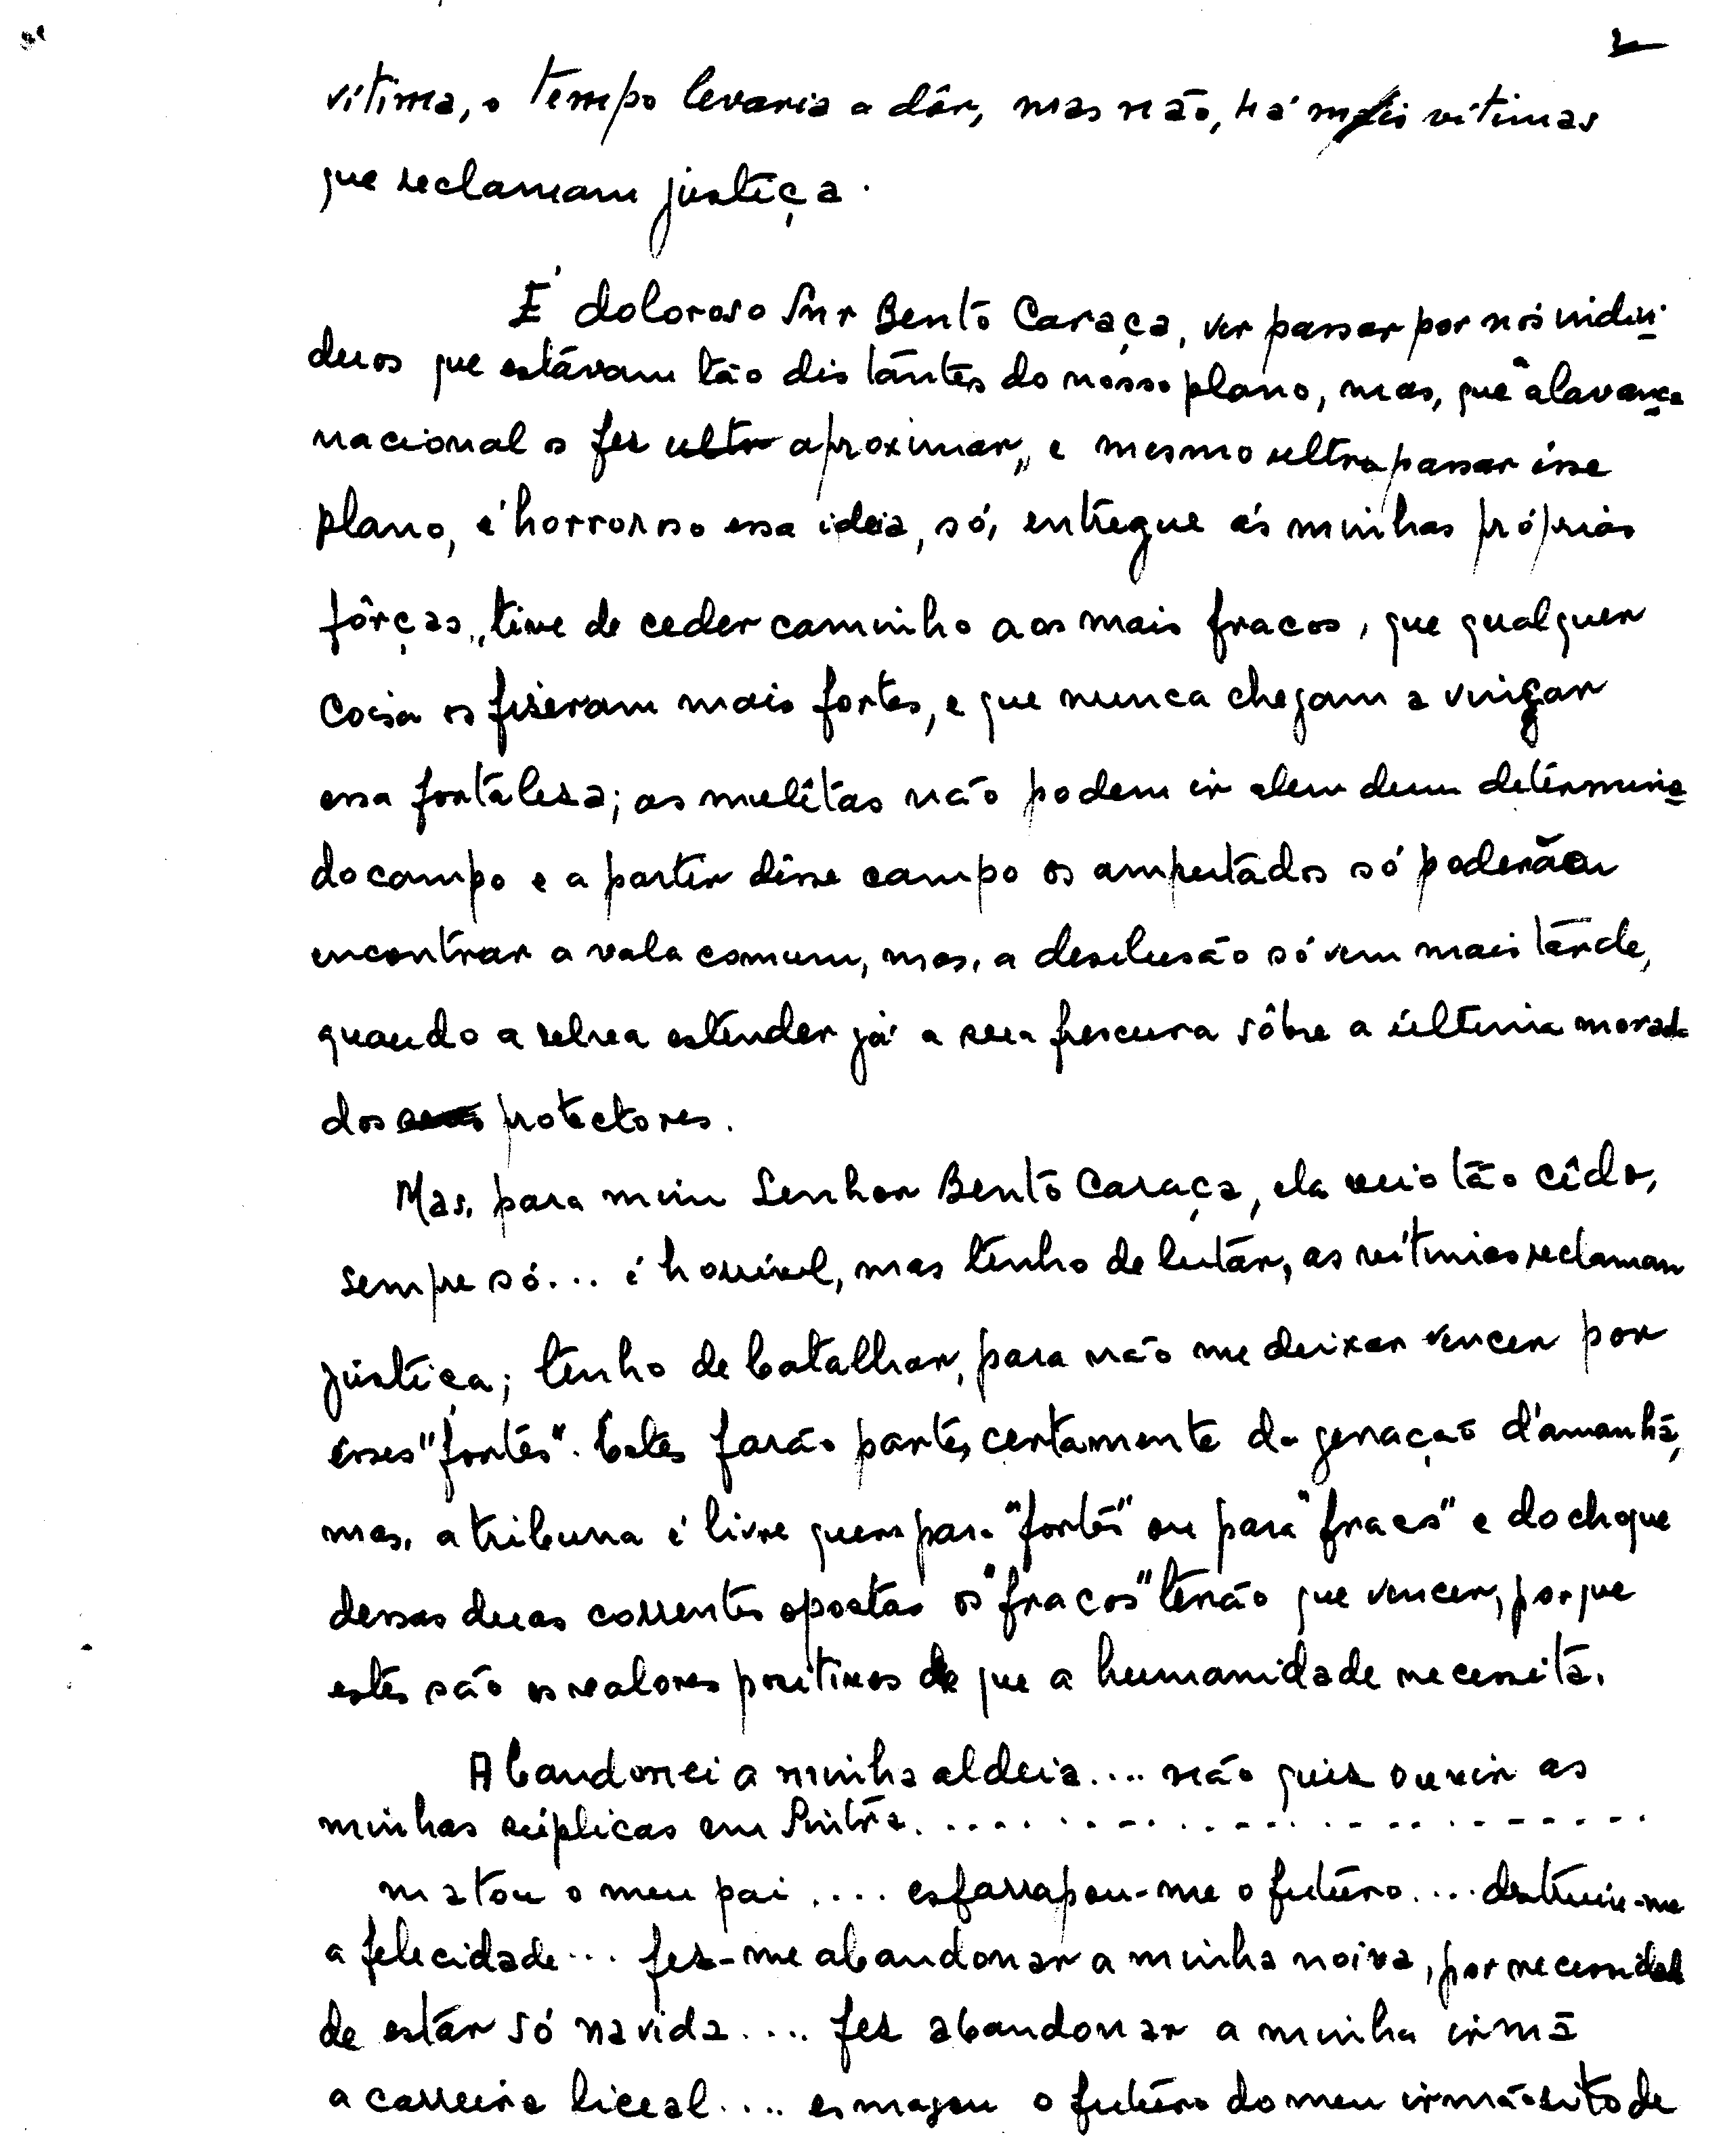 2
vítima, o tempo levaria a dôr, mas não, há mais vítimas
que reclamam justiça.
É doloroso Snr Bento Caraça, ver passar por nós indiví-
duos que estávam tão distântes do nosso plano, mas, que "alavanca
nacional os fez ultr aproximar", e mesmo ultrapassar êsse
plano, é horroroso essa ideia, só, entregue ás minhas próprias
fôrças, tive de ceder caminho aos mais fracos, que qualquer
coisa os fiseram mais fortes, e que nunca chegam a vingar
essa fortalesa; as mulêtas não podem ir alem dum determina
do campo e a partir dêsse campo os amputádos só poderão
encontrar a vala comum, mas, a desilusão só vem mais tárde,
quando a relva estender já a sua frescura sôbre a última morada
dos seus protectores.
Mas, para mim Senhor Bento Caraça, ela veio tão cêdo,
sempre só... é horrível, mas tenho de lutár, as vítimas reclamam
justiça; tenho de batalhar, para não me deixar vencer por
êsses "fortes". Estes farão parte, certamente da geração d'amanhã,
mas, a tribuna é livre quer para "fortes" ou para "fracos" e do choque
dessas duas correntes opostas os "fracos" terão que vencer, porque
estes são os valores positivos de que a humanidade necessita.
Abandonei a minha aldeia.... não quiz ouvir as
minhas súplicas em Sintra. . . . . . . . . . . . . . . . . . . .
matou o meu pai .... esfarrapou-me o futuro.... destruiu-me
a felecidade... fez-me abandonar a minha noiva, por necessidade
de estár só na vida.... fez abandonar a minha irmã
a carreira liceal.... esmagou o futuro do meu irmãosito de